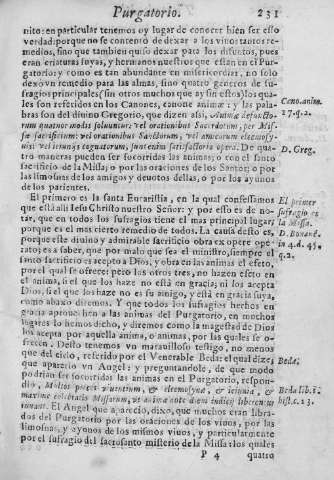 Purgatorio. 231
nito: en particular tenemos oy lugar de conocer bien ser esto
verdad: porque no se contentò de dexar a los viuos tantos re-
medios, sino que tambien quiso dexar para los difuntos, pues
eran criaturas suyas, y hermanos nuestros que estàn en el Pur-
gatorio: y como es tan abundante en misericordias, no solo
dexò vn remedio para las almas, sino quatro generos de su-
fragios principales (sin otros muchos que ay sin estos) los qua-
les son referidos en los Canones, canone animæ: y las pala-
bras son del diuino Gregorio, que dizen assi, Animæ defuncto-
rum quatuor modis soluuntur: vel orationibus Sacerdotum, per Mis-
sæ sacrificium: vel orationibus Sanctorum, vel amicorum eleemosy-
nis: vel ieiunijs cognatorum, sunt enim satisfactoria opera. De qua-
tro maneras pueden ser socorridas las animas; o con el santo
sacrificio de la Missa; o por las oraciones de los Santos; o por
las limosnas de los amigos y deuotos dellas, o por los ayunos
de los parientes.
Cano. anime
27. q. 2.
D. Greg.
El primero es la santa Eucaristia, en la qual confessamos
que està alli Iesu Christo nuestro Señor: y por esso es de no-
tar, que en todos los sufragios tiene el mas principal lugar;
porque es el mas cierto remedio de todos. La causa desto es,
porque este diuino y admirable sacrificio obra ex opere ope-
rato: es a saber, que por malo que sea el ministro, siempre el
santo sacrificio es acepto a Dios, y obra en las animas el efeto,
por el qual se ofrece: pero los otros tres, no hazen efeto en
el anima, si el que los haze no està en gracia; ni los acepta
Dios, si el que los haze no es su amigo, y està en gracia suya,
como abaxo diremos. Y que todos los sufragios hechos en
gracia aprouechen a las animas del Purgatorio, en muchos
lugares lo hemos dicho, y diremos como la magestad de Dios
los acepta por aquella anima, o animas, por las quales se ofre-
cen. Desto tenemos vn marauilloso testigo, no menos
que del cielo, referido por el Venerable Beda: el qual dize,
que aparecio vn Angel: y preguntandole, de que modo
podrian ser socorridas las animas en el Purgatorio, respon-
dio, Multos preces viuentium, & eleemosyna, & ieiunia, &
maxime celebratio Missarum, vt anime ante diem iudicij liberentur
iuuant. El Angel que aparecio, dixo, que muchos eran libra-
dos del Purgatorio por las oraciones de los viuos, por las
limosnas, y ayunos de los mismos viuos, y particularmente
por el sufragio del sacrosanto misterio de la Missa: los quales
El primer
sufragio es
la Missa.
D. Bonauē.
in 4. d. 45.
q. 2.
Beda.
Beda lib. 5.
hist. c. 13.
P 4 quatro